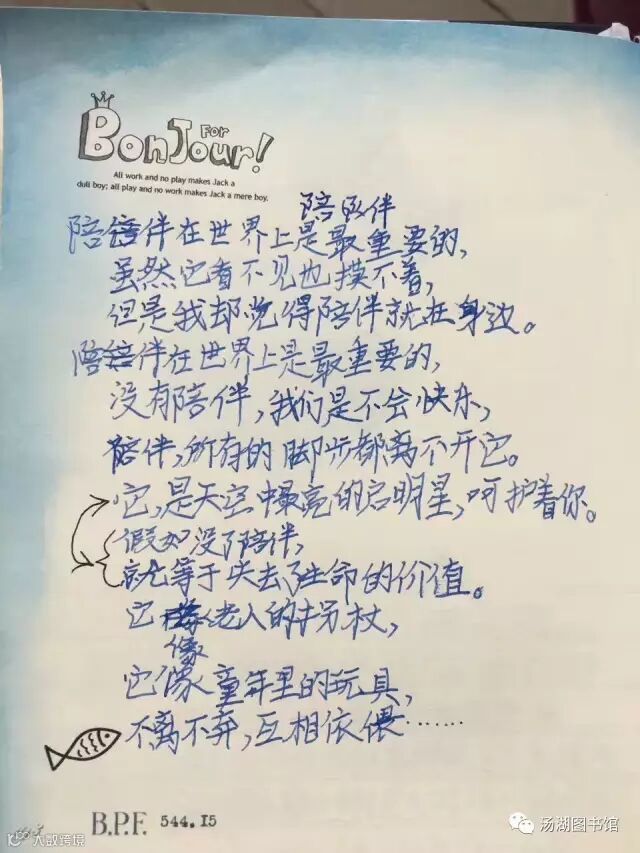 BonJour!
FOR
All work and no play makes Jack a
dull boy; all play and no work makes Jack a mere boy.
陪伴
陪伴在世界上是最重要的,
虽然它看不见也摸不着,
但是我却觉得陪伴就在身边。
陪伴在世界上是最重要的,
没有陪伴,我们是不会快乐,
陪伴,所有的脚步都离不开它。
它,是天空中最亮的启明星,呵护着你。
假如没了陪伴,
就等于失去了生命的价值。
它像老人的拐杖,
它像童年里的玩具,
不离不弃,互相依偎……
B.P.F. 544.15
大数跨境
汤湖图书馆